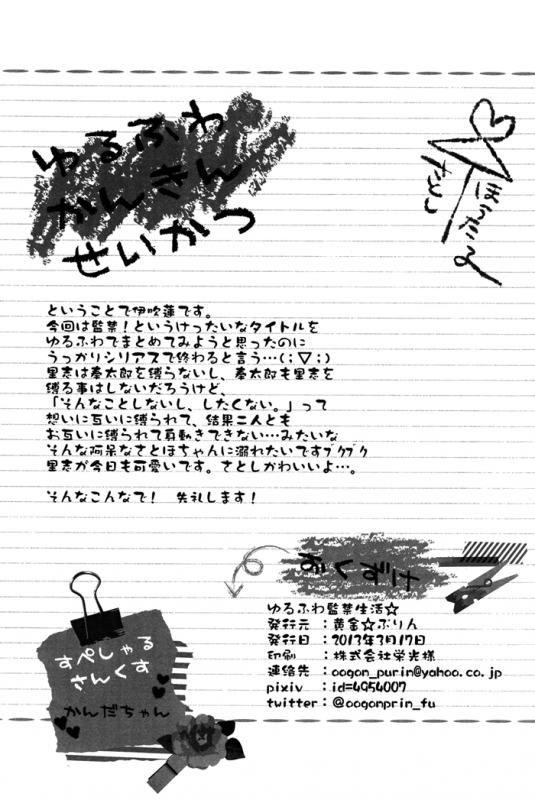 ゆるふわ
かんきん
せいかつ
ほうたろる
さとし
ということで伊吹蓮です。
今回は監禁!というけったいなタイトルを
ゆるふわでまとめてみようと思ったのに
うっかりシリアスで終わると言う…(;▽;)
里志は奉太郎を縛らないし、奉太郎も里志を
縛る事はしないだろうけど、
「そんなことしないし、したくない。」って
想いに互いに縛られて、結果二人とも
お互いに縛られて身動きできない…みたいな
そんな阿呆なさとほちゃんに溺れたいですブクブク
里志が今日も可愛いです。さとしかわいいよ…。
そんなこんなで! 失礼します!
おくずけ
ゆるふわ監禁生活☆
発行元:黄金☆ぷりん
発行日:2013年3月17日
印刷 :株式会社栄光様
連絡先:oogon_purin@yahoo.co.jp
pixiv :id=4954007
twitter:@oogonprin_fu
すぺしゃる
さんくす
かんだちゃん